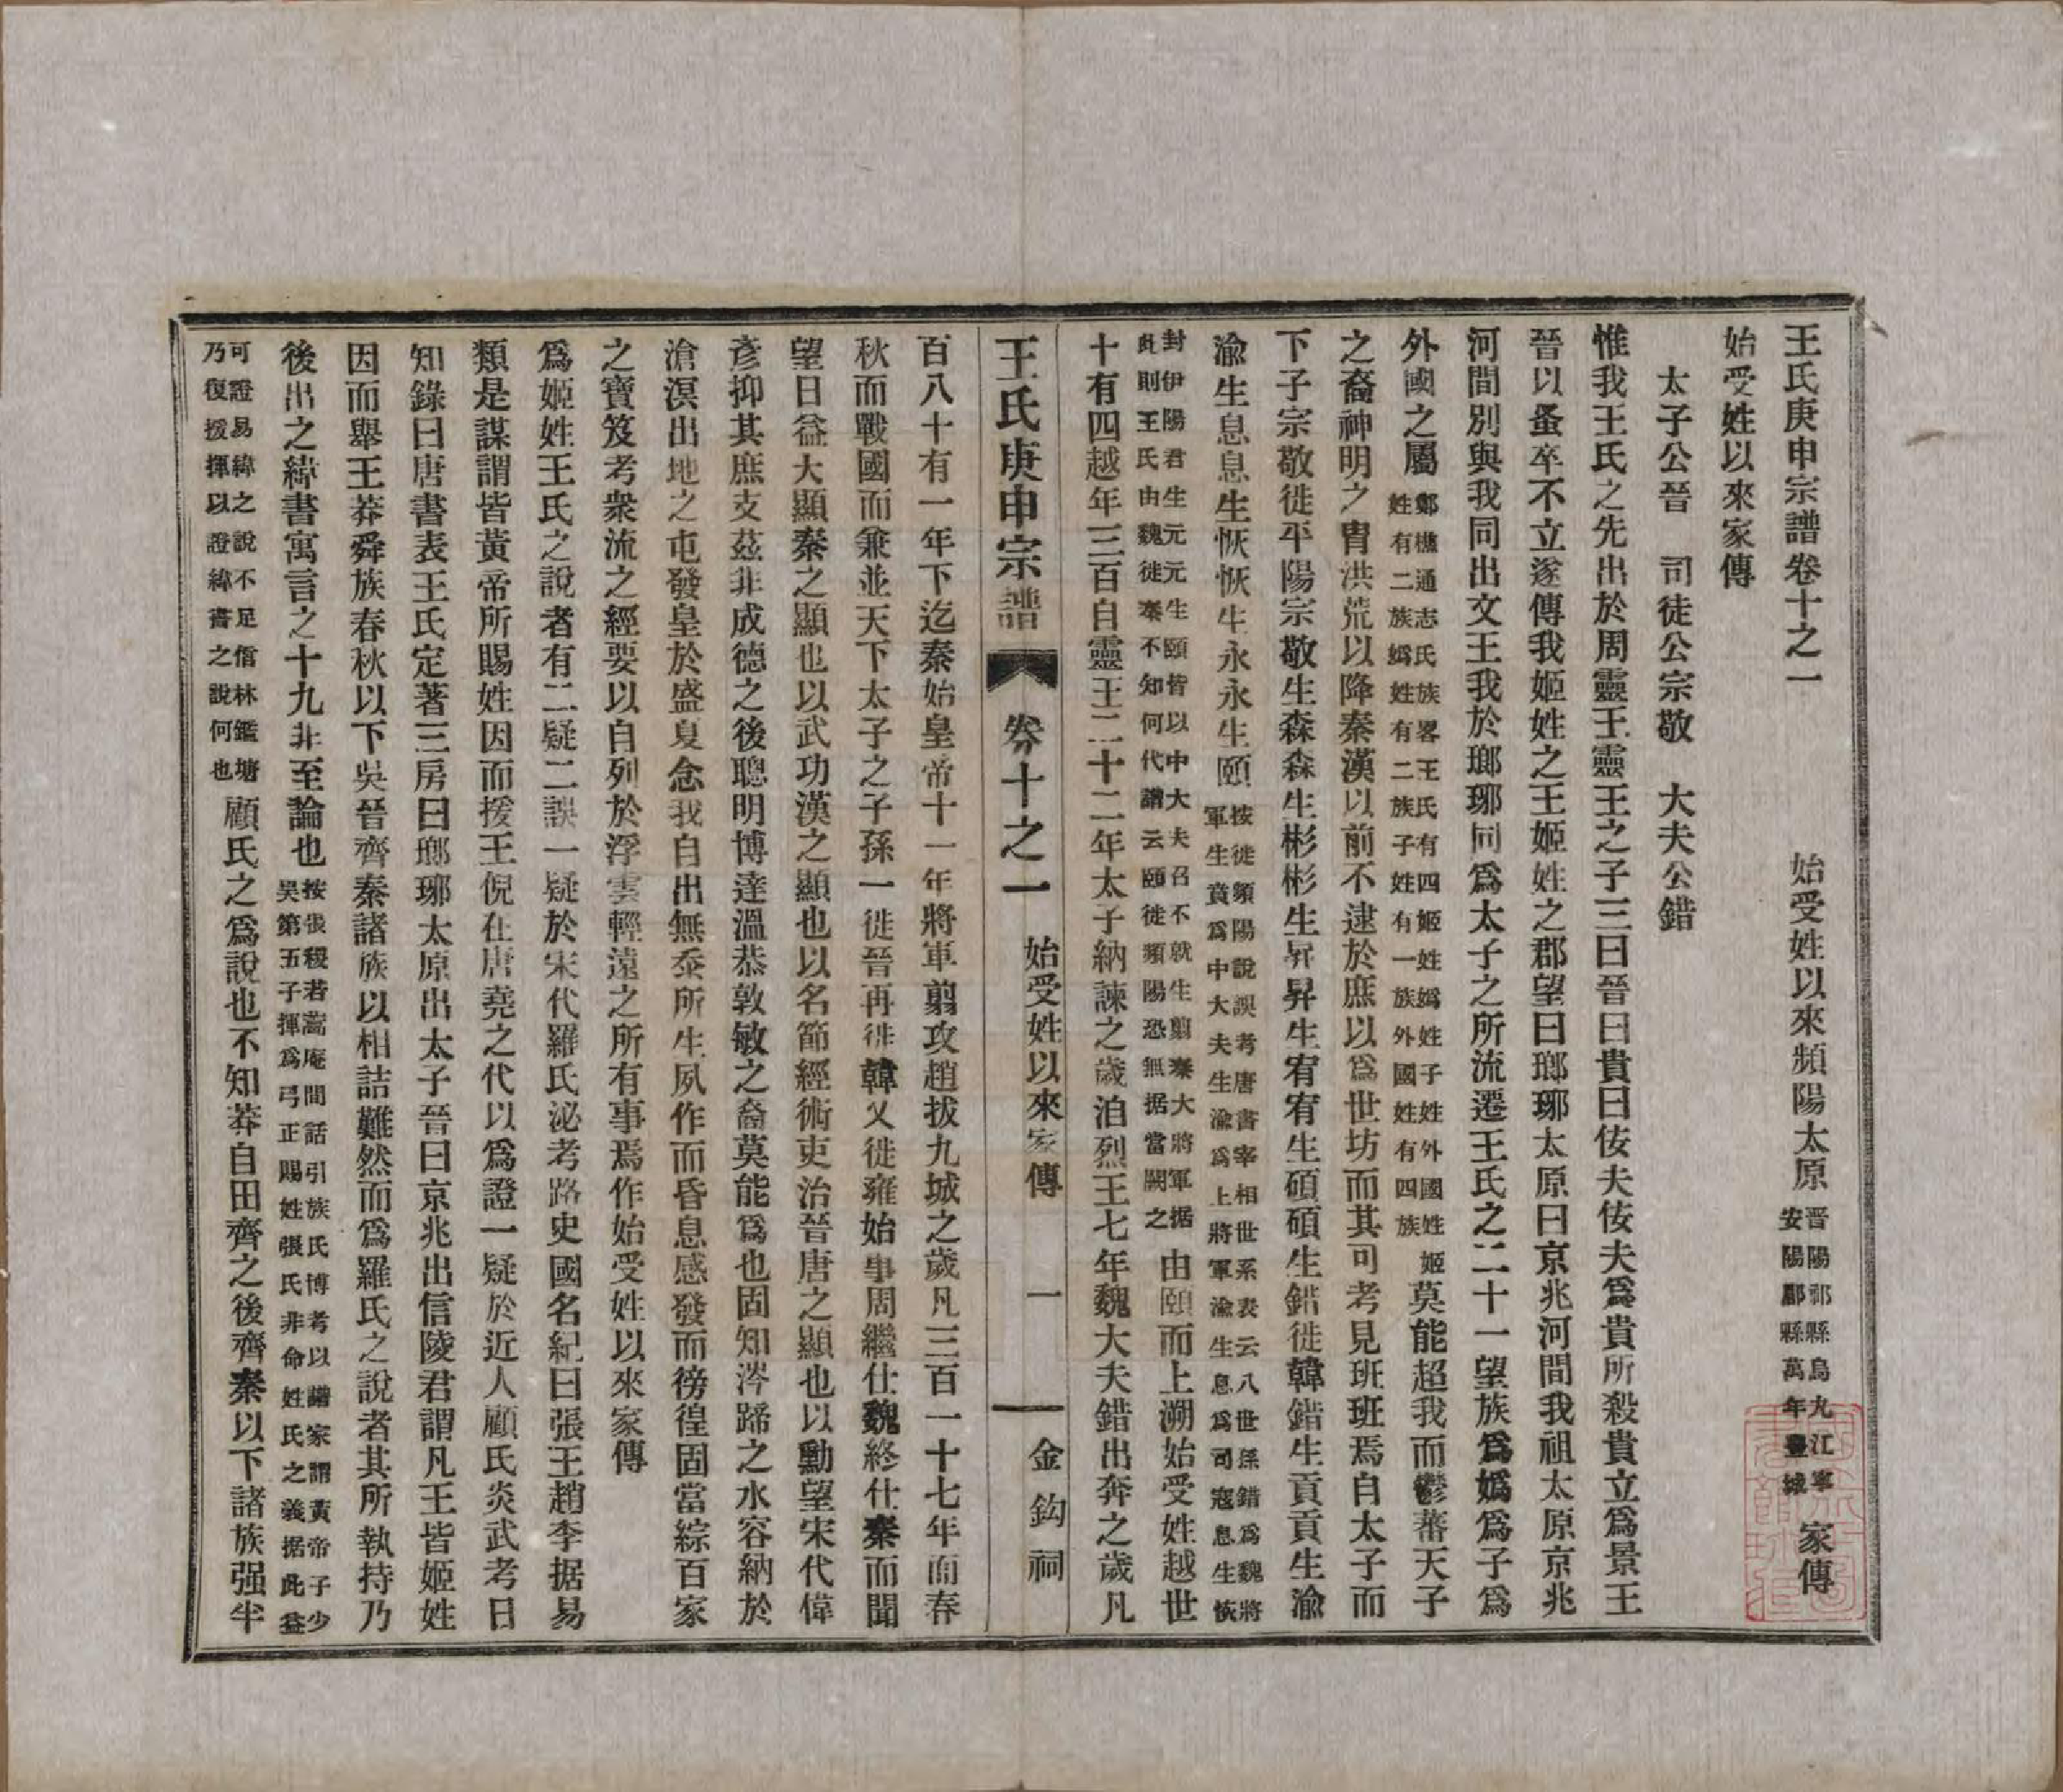 王氏庚申宗譜卷十之一　始受姓以來頻陽太原晋陽祁縣烏九江寧安陽酈縣萬年家傳
始受姓以來家傳
太子公晉　司徒公宗敬　大夫公錯
惟我王氏之先出於周靈王靈王之子三曰晉曰貴曰佞夫佞夫爲貴所殺貴立爲景王
晉以蚤卒不立遂傳我姬姓之王姬姓之郡望曰瑯琊太原曰京兆河間我祖太原京兆
河間別與我同出文王我於瑯琊同爲太子之所流遷王氏之二十一望族爲嬀爲子爲
外國之屬鄭樵通志氏族畧王氏有四姬姓嬀姓子姓外國姓姬姓有二族嬀姓有二族子姓有一族外國姓有四族莫能超我而鬱蕃天子
之裔神明之胄洪荒以降秦漢以前不逮於庶以爲世坊而其可考見班班焉自太子而
下子宗敬徙平陽宗敬生森森生彬彬生昇昇生宥宥生碩碩生錯徙韓錯生貢貢生渝
渝生息息生恢恢生永永生頤按徙頻陽說誤考唐書宰相世系表云八世孫錯爲魏將軍生賁爲中大夫生渝爲上將軍渝生息爲司寇息生恢
封伊陽君生元元生頤皆以中大夫召不就生翦秦大將軍据此則王氏由魏徙秦不知何代譜云頤徙頻陽恐無据當闕之由頤而上溯始受姓越世
十有四越年三百自靈王二十二年太子納諫之歲洎烈王七年魏大夫錯出奔之歲凡
王氏庚申宗譜　卷十之一　始受姓以來家傳　一　金鈎祠
百八十有一年下迄秦始皇帝十一年將軍翦攻趙拔九城之歲凡三百一十七年而春
秋而戰國而兼並天下太子之子孫一徙晉再徙韓又徙雍始事周繼仕魏終仕秦而聞
望日益大顯秦之顯也以武功漢之顯也以名節經術吏治晉唐之顯也以勳望宋代偉
彥抑其庶支茲非成德之後聰明博達溫恭敦敏之裔莫能爲也固知涔蹏之水容納於
滄溟出地之屯發皇於盛夏念我自出無忝所生夙作而昏息感發而徬徨固當綜百家
之寶笈考衆流之經要以自列於浮雲輕遠之所有事焉作始受姓以來家傳
爲姬姓王氏之說者有二疑二誤一疑於宋代羅氏泌考路史國名紀曰張王趙李据易
類是謀謂皆黃帝所賜姓因而援王倪在唐堯之代以爲證一疑於近人顧氏炎武考日
知錄曰唐書表王氏定著三房曰瑯琊太原出太子晉曰京兆出信陵君謂凡王皆姬姓
因而舉王莽舜族春秋以下吳晉齊秦諸族以相詰難然而爲羅氏之說者其所執持乃
後出之緯書寓言之十九非至論也按張稷若蒿庵閒話引族氏博考以譜家謂黃帝子少吳第五子揮爲弓正賜姓張氏非命姓氏之義据此益
可證易緯之說不足信林鑑塘乃復援揮以證緯書之說何也顧氏之爲說也不知莽自田齊之後齊秦以下諸族强半